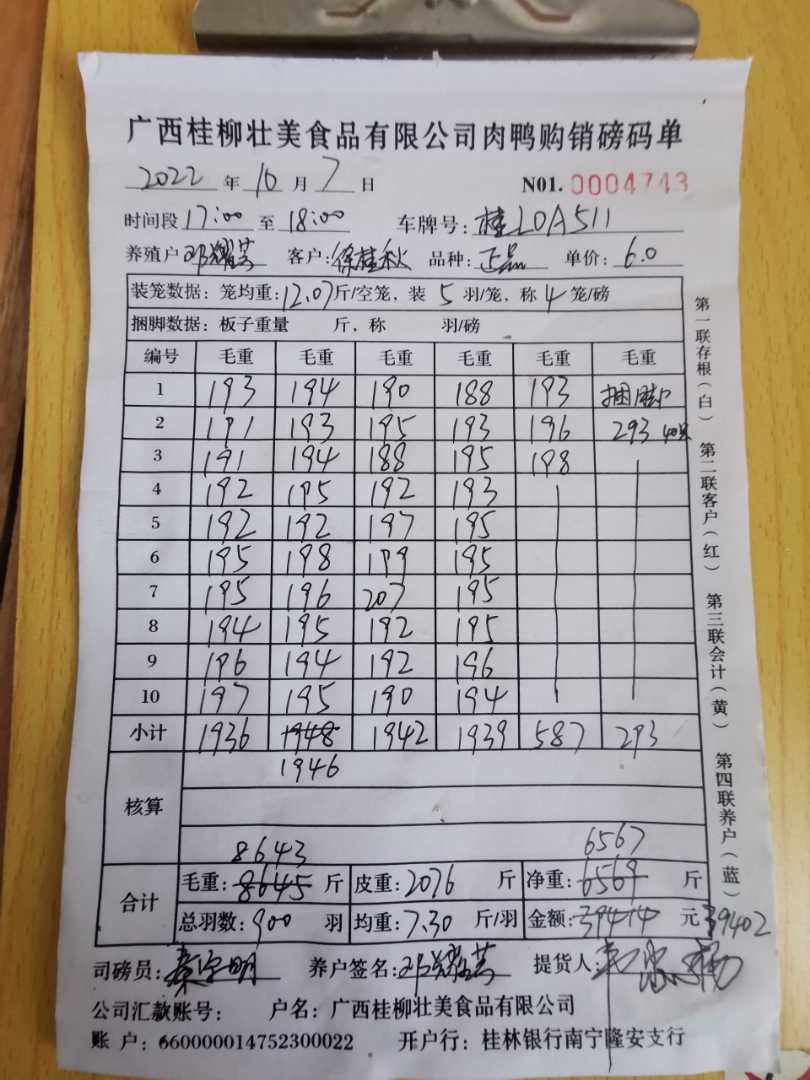 广西桂柳壮美食品有限公司肉鸭购销磅码单
2022 年 10 月 7 日 N01. 0004743
时间段 17:00 至 18:00 车牌号: 桂L0A511
养殖户 邓耀芸 客户: 徐桂秋 品种: 正品 单价: 6.0
装笼数据: 笼均重: 12.07 斤/空笼, 装 5 羽/笼, 称 4 笼/磅
捆脚数据: 板子重量 斤, 称 羽/磅
编号 毛重 毛重 毛重 毛重 毛重 毛重
1 193 194 190 188 193 捆脚
2 191 193 195 193 196 293 40只
3 191 194 188 195 198
4 192 195 192 193
5 192 192 197 195
6 195 198 199 195
7 195 196 207 195
8 194 195 192 195
9 196 194 192 196
10 197 195 190 194
小计 1936 1948 1942 1939 587 293
1946
核算
8643 6567
合计 毛重: 8645 斤 皮重: 2076 斤 净重: 6569 斤
总羽数: 900 羽 均重: 7.30 斤/羽 金额: 39414 元 39402
司磅员: 养户签名: 邓耀芸 提货人:
公司汇款账号: 户名: 广西桂柳壮美食品有限公司
账 户: 660000014752300022 开户行: 桂林银行南宁隆安支行
第一联存根(白) 第二联客户(红) 第三联会计(黄) 第四联养户(蓝)